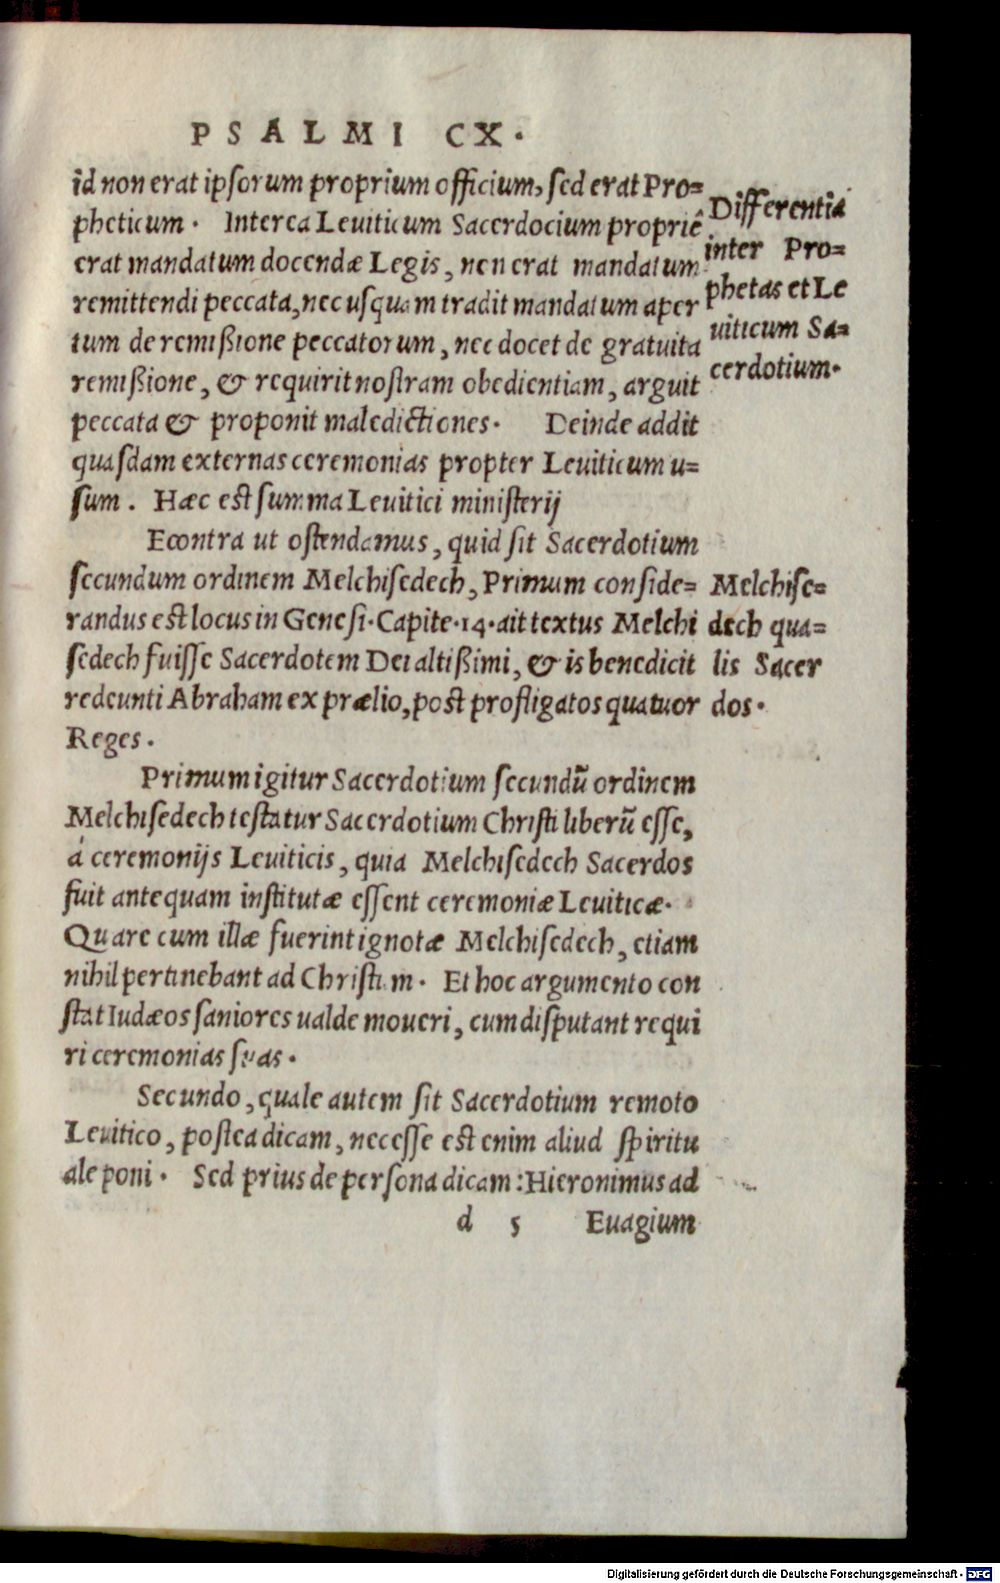 PSALMI CX.
id non erat ipsorum proprium officium, sed erat Pro=
pheticum. Interea Leuiticum Sacerdocium propriè
erat mandatum docendæ Legis, non erat mandatum
remittendi peccata, nec usquam tradit mandatum aper
tum de remißione peccatorum, nec docet de gratuita
remißione, & requirit nostram obedientiam, arguit
peccata & proponit maledictiones. Deinde addit
quasdam externas ceremonias propter Leuiticum u=
sum. Hæc est summa Leuitici ministerij
Differentia
inter Pro=
phetas et Le
uiticum Sa=
cerdotium.
Econtra ut ostendamus, quid sit Sacerdotium
secundum ordinem Melchisedech, Primum conside=
randus est locus in Genesi. Capite. 14. ait textus Melchi
sedech fuisse Sacerdotem Dei altißimi, & is benedicit
redeunti Abraham ex prælio, post profligatos quatuor
Reges.
Melchise=
dech qua=
lis Sacer
dos.
Primum igitur Sacerdotium secundũ ordinem
Melchisedech testatur Sacerdotium Christi liberũ esse,
á ceremonijs Leuiticis, quia Melchisedech Sacerdos
fuit antequam institutæ essent ceremoniæ Leuiticæ.
Quare cum illæ fuerint ignotæ Melchisedech, etiam
nihil pertinebant ad Christum. Et hoc argumento con
stat Iudæos saniores ualde moueri, cum disputant requi
ri ceremonias suas.
Secundo, quale autem sit Sacerdotium remoto
Leuitico, postea dicam, necesse est enim aliud spiritu
ale poni. Sed prius de persona dicam: Hieronimus ad
d 5 Euagium
Digitalisierung gefördert durch die Deutsche Forschungsgemeinschaft - DFG